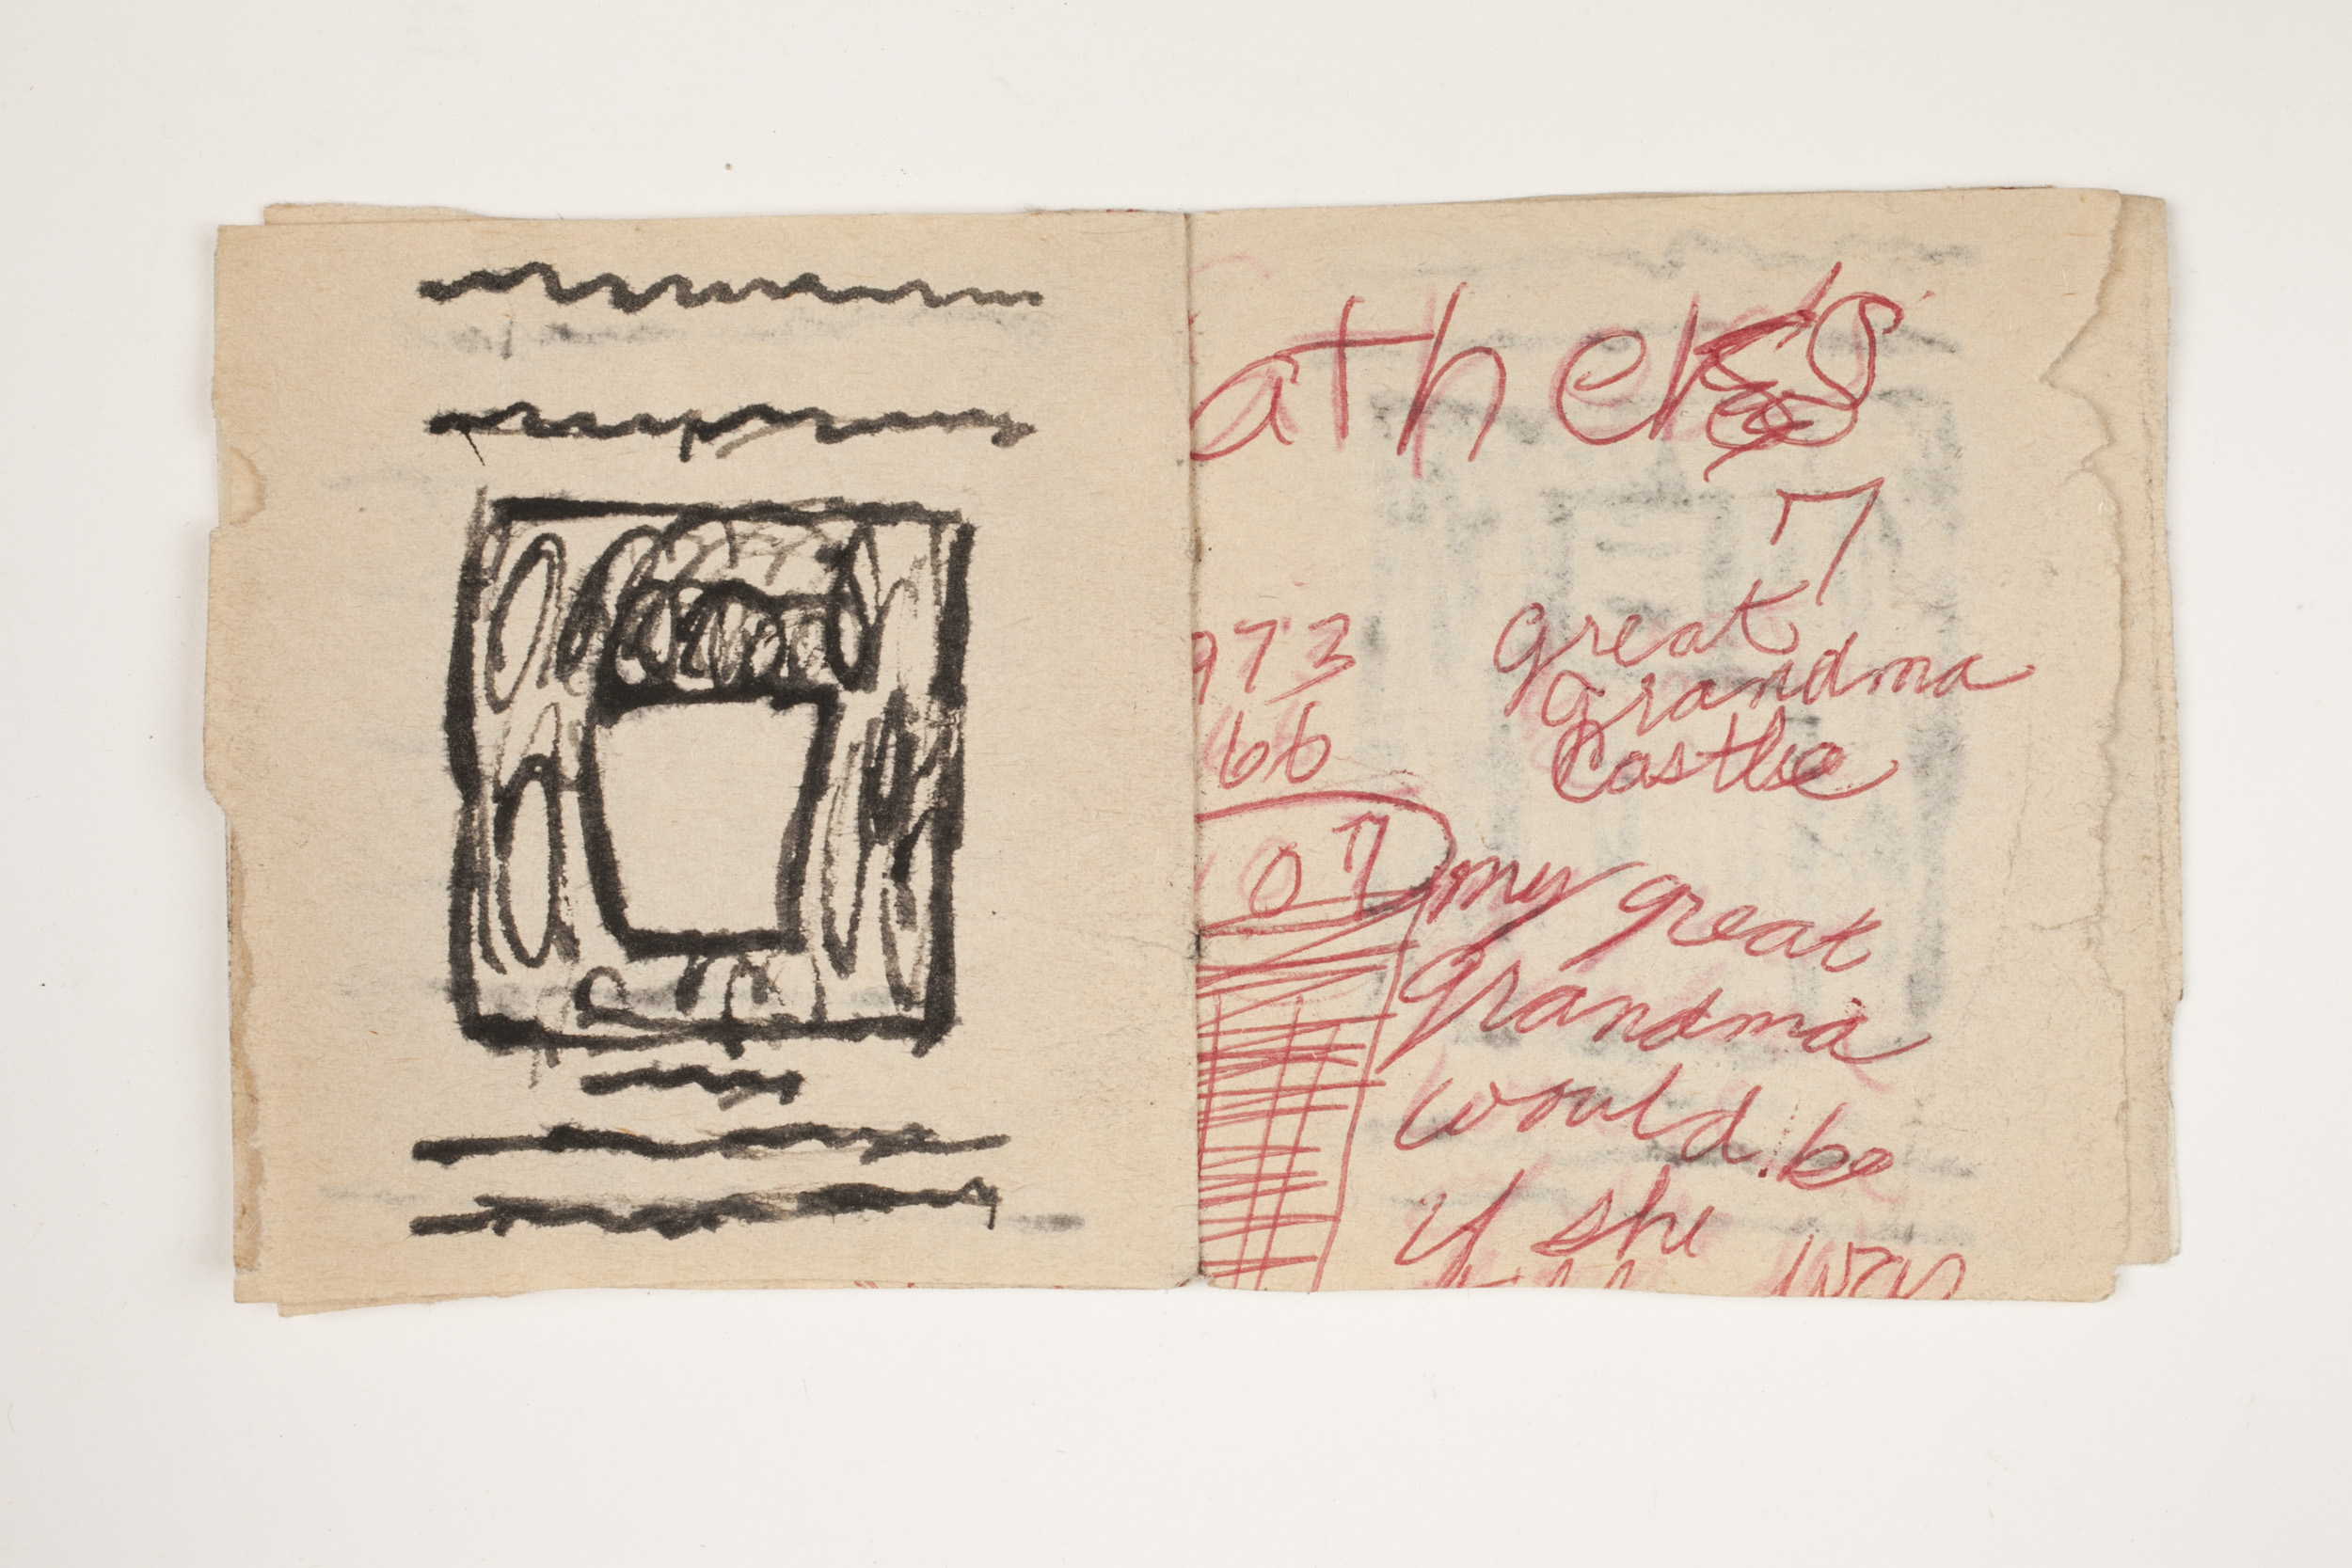 athers
7
973 great
grandma
66 Castle
107 my great
grandma
would be
if she
was